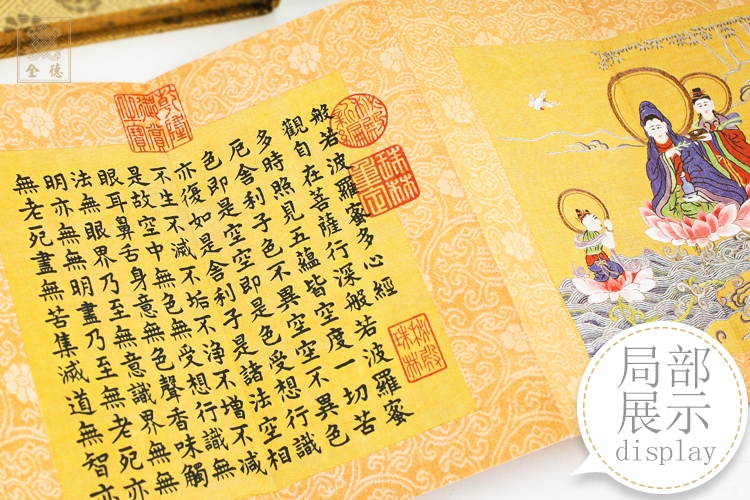 全德
乾隆御賞之寶
秘殿新編
珠林重定
秘殿珠林
般若波羅蜜多心經
觀自在菩薩行深般若波羅蜜
多時照見五蘊皆空度一切苦
厄舍利子色不異空空不異色
色即是空空即是色受想行識
亦復如是舍利子是諸法空相
不生不滅不垢不淨不增不減
是故空中無色無受想行識無
眼耳鼻舌身意無色聲香味觸
法無眼界乃至無意識界無無
明亦無無明盡乃至無老死亦
無老死盡無苦集滅道無智亦
局部
展示
display